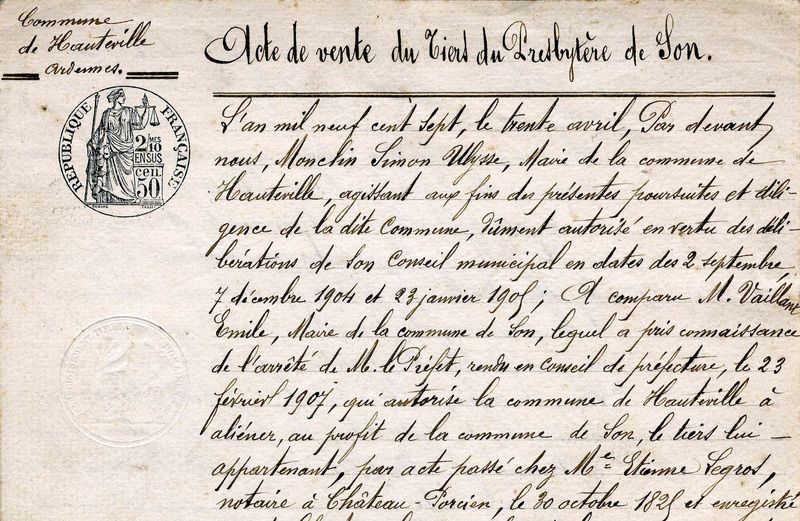 Commune
de Hauteville
Ardennes.
Acte de vente du Tiers du Presbytère de Son.
RÉPUBLIQUE FRANÇAISE
2/10 MES
EN SUS
50 cen.
L'an mil neuf cent sept, le trente avril, Par devant
nous, Monclin Simon Ulysse, Maire de la commune de
Hauteville, agissant aux fins des présentes poursuites et dili-
gence de la dite Commune, dûment autorisé en vertu des déli-
bérations de son Conseil municipal en dates des 2 septembre,
7 décembre 1904 et 23 janvier 1905; A comparu M. Vaillant
Emile, Maire de la commune de Son, lequel a pris connaissance
de l'arrêté de M. le Préfet, rendu en conseil de préfecture, le 23
février 1907, qui autorise la commune de Hauteville à
aliéner, au profit de la commune de Son, le tiers lui –
appartenant, par acte passé chez Me Etienne Legros,
notaire à Château-Porcien, le 30 octobre 1825 et enregistré